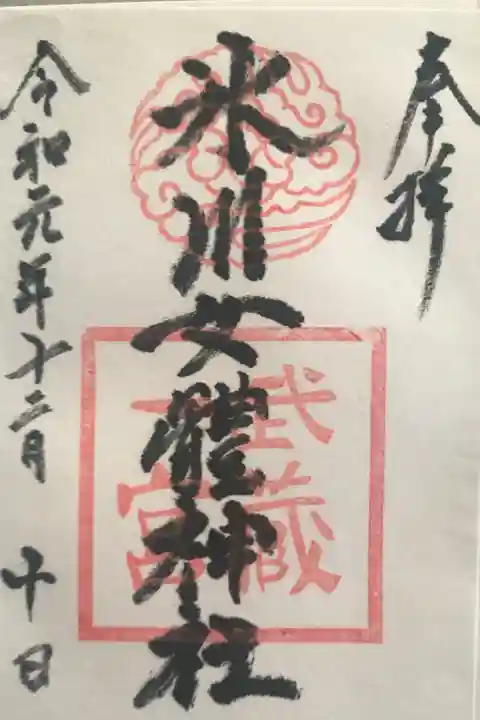 奉拝
氷川女體神社
武蔵
一宮
令和元年十二月十日